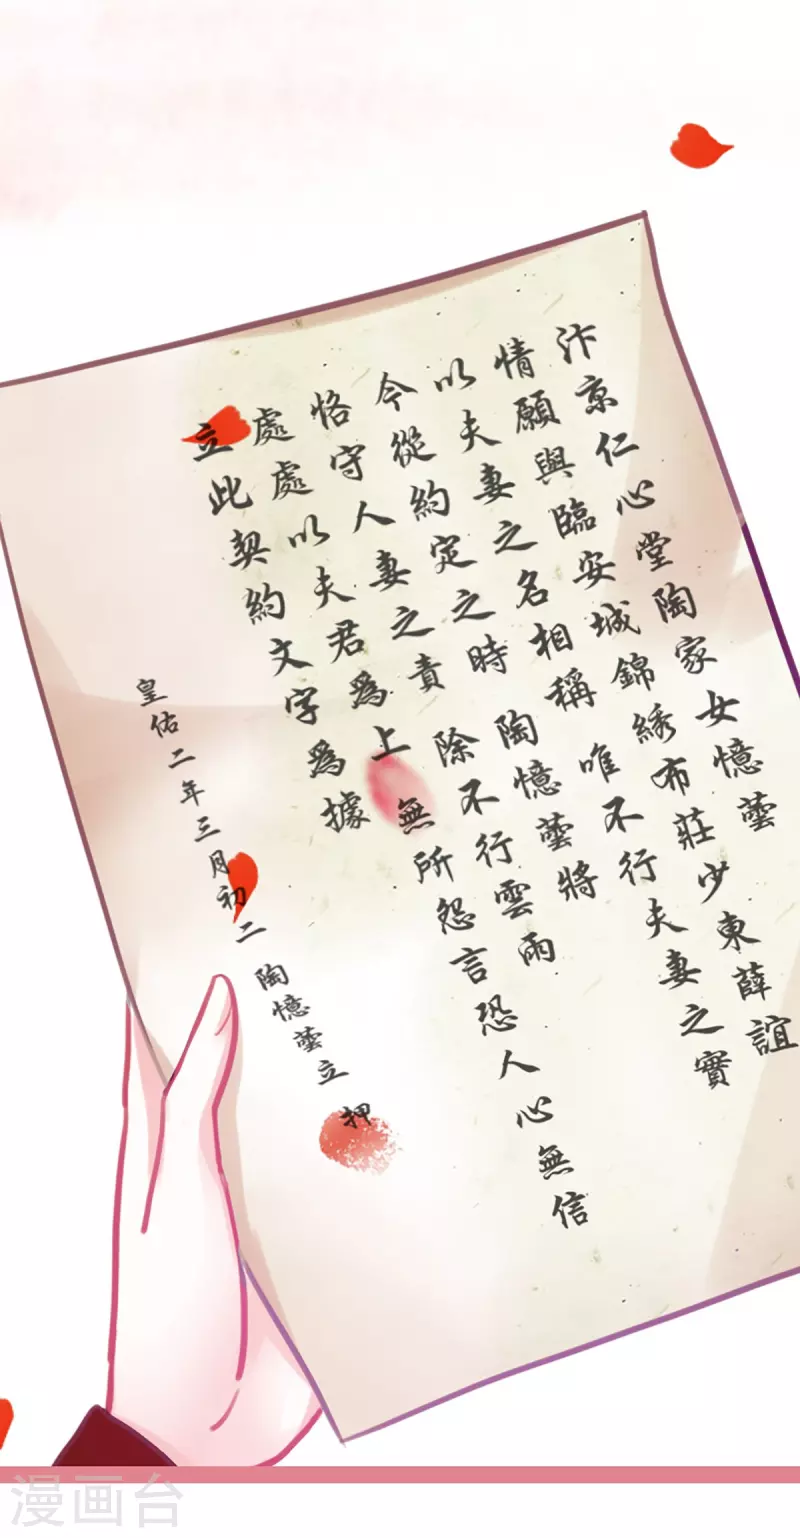 汴京仁心堂陶家女憶蕓
情願與臨安城錦綉布莊少東薛誼
以夫妻之名相稱 唯不行夫妻之實
今從約定之時 陶憶蕓將
恪守人妻之責 除不行雲雨
處處以夫君爲上 無所怨言恐人心無信
立此契約文字爲據
皇佑二年三月初二 陶憶蕓立 押
漫画台